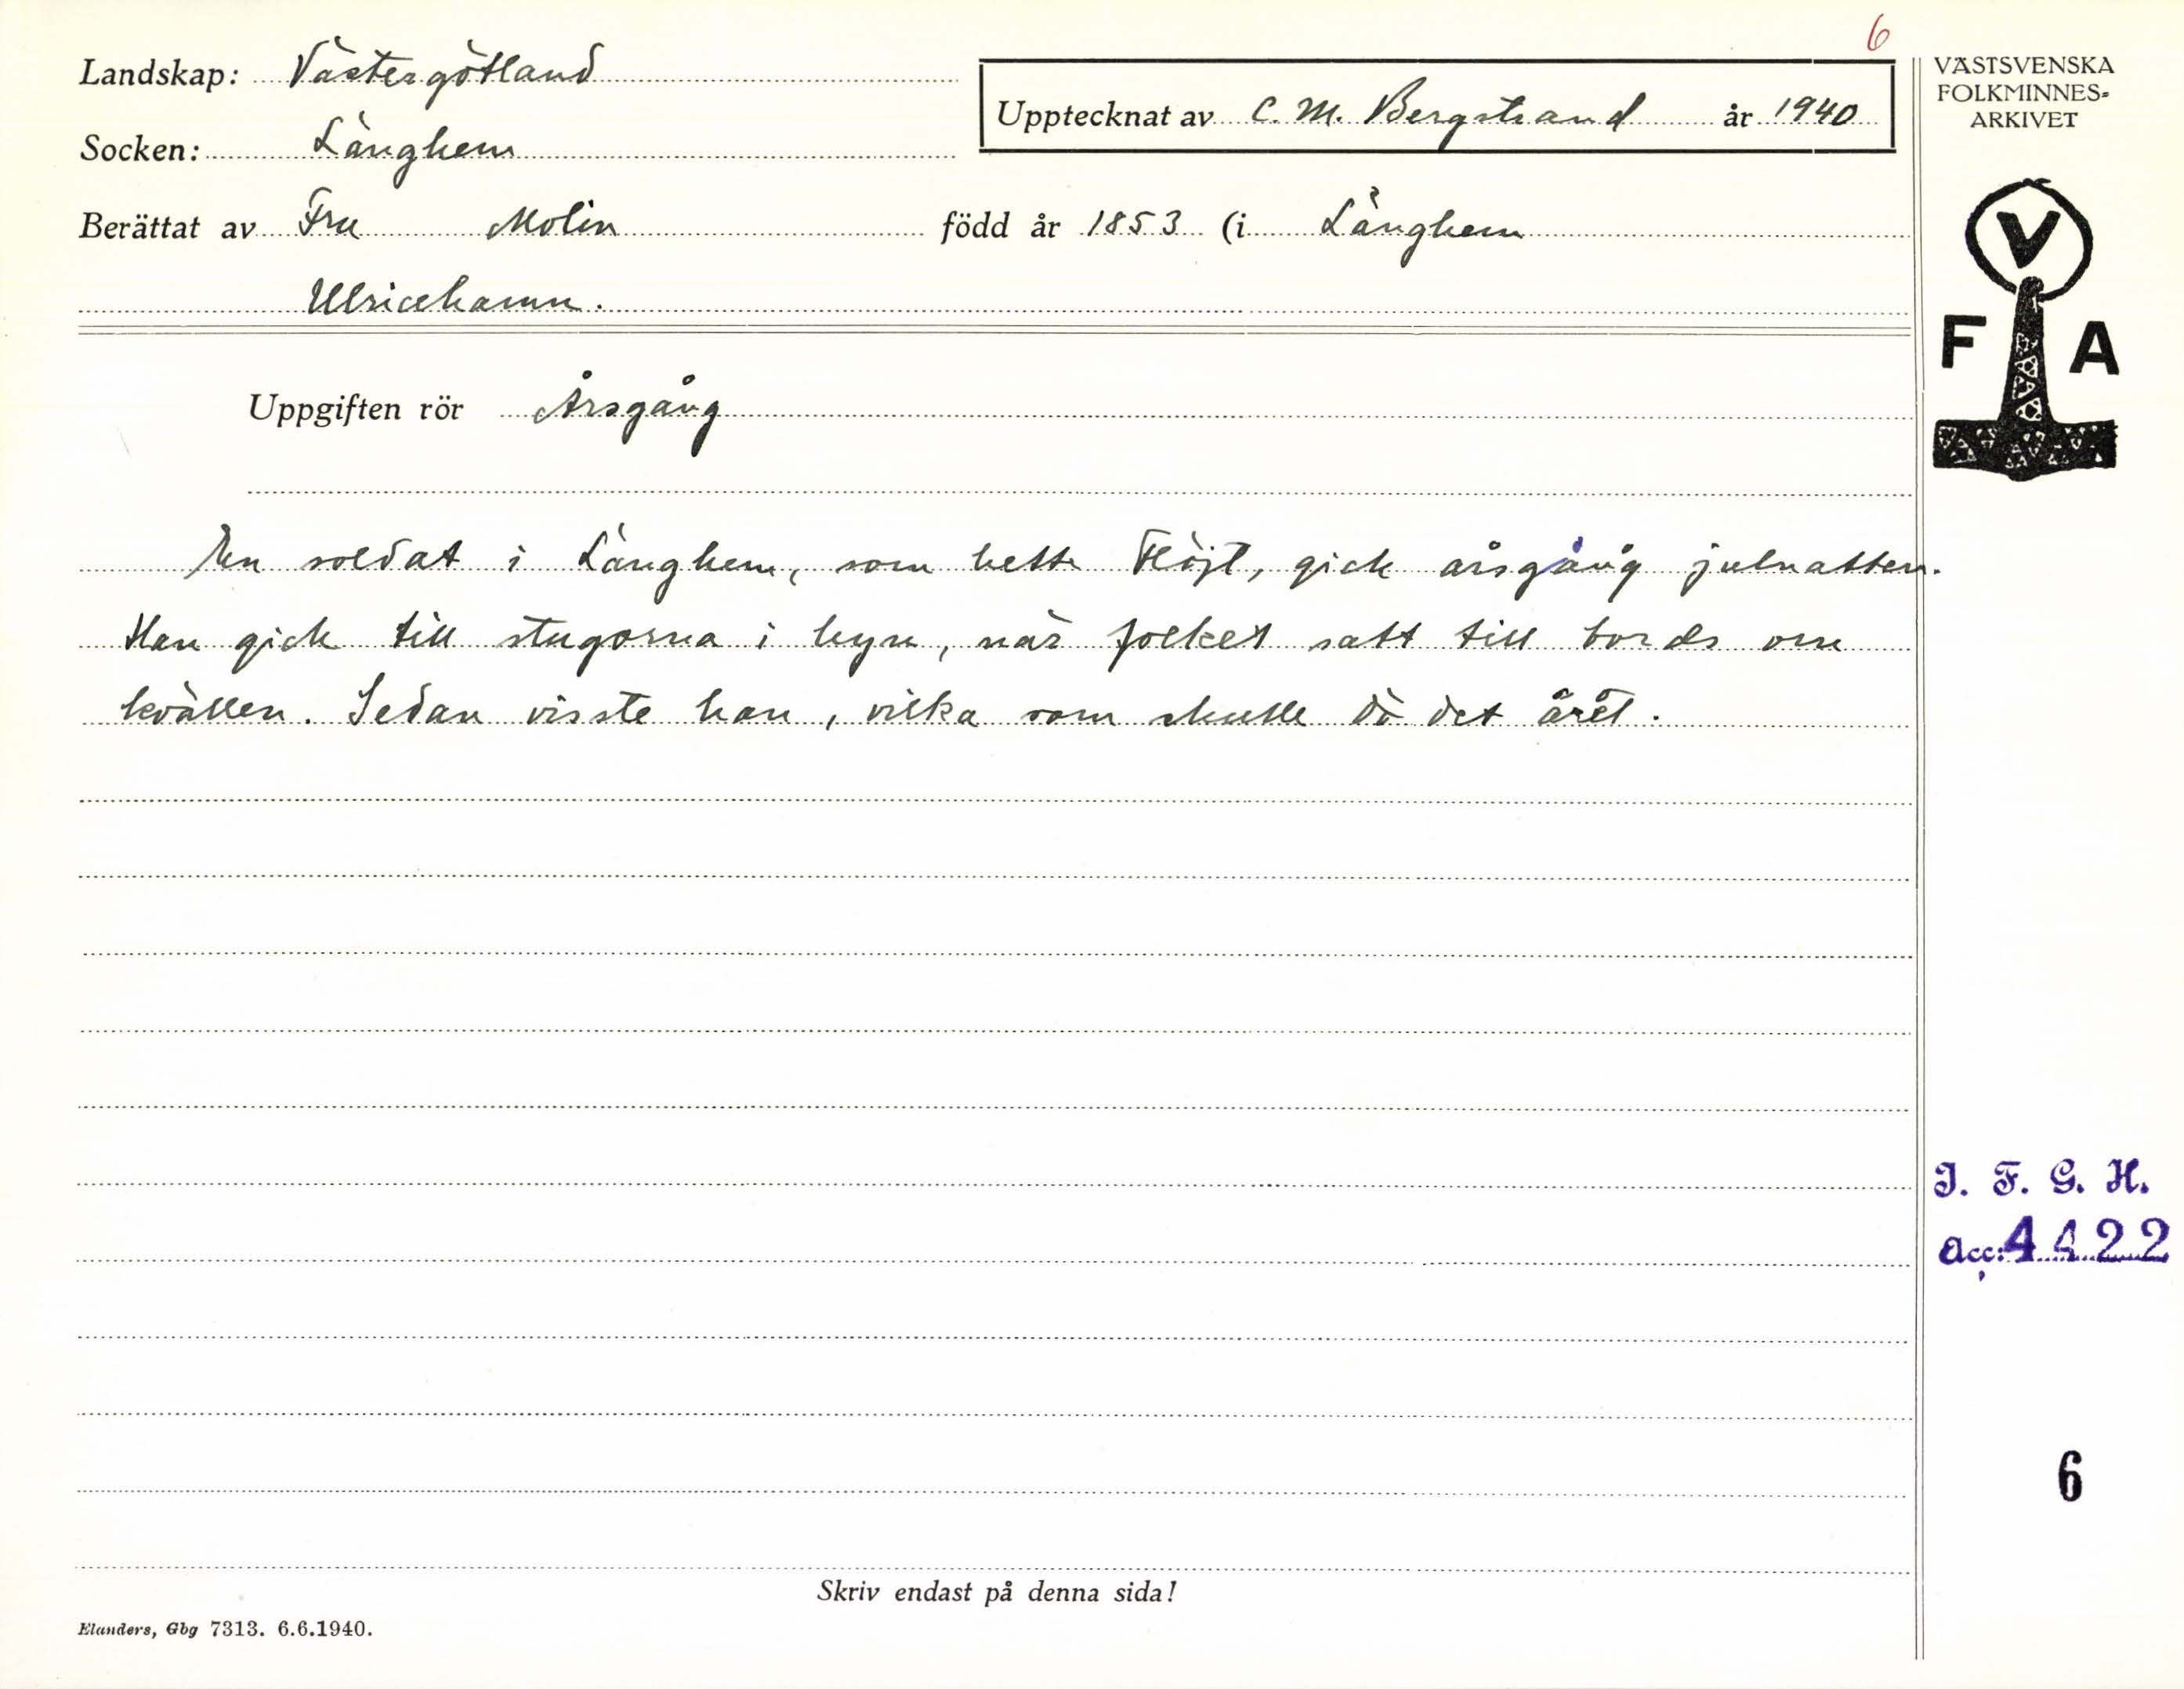 6
Landskap: Västergötland
Upptecknat av C. M. Bergstrand år 1940
Socken: Länghem
Berättat av Fru Molin född år 1853 (i Länghem
Ulricehamn.
VÄSTSVENSKA
FOLKMINNES-
ARKIVET
V
F A
Uppgiften rör Årsgång
En soldat i Länghem, som hette Flöjt, gick årsgång julnatten.
Han gick till stugorna i byn, när folket satt till bords om
kvällen. Sedan visste han, vilka som skulle dö det året.
I. F. G. H.
Acc: 4422
6
Skriv endast på denna sida!
Elanders, Gbg 7313. 6.6.1940.